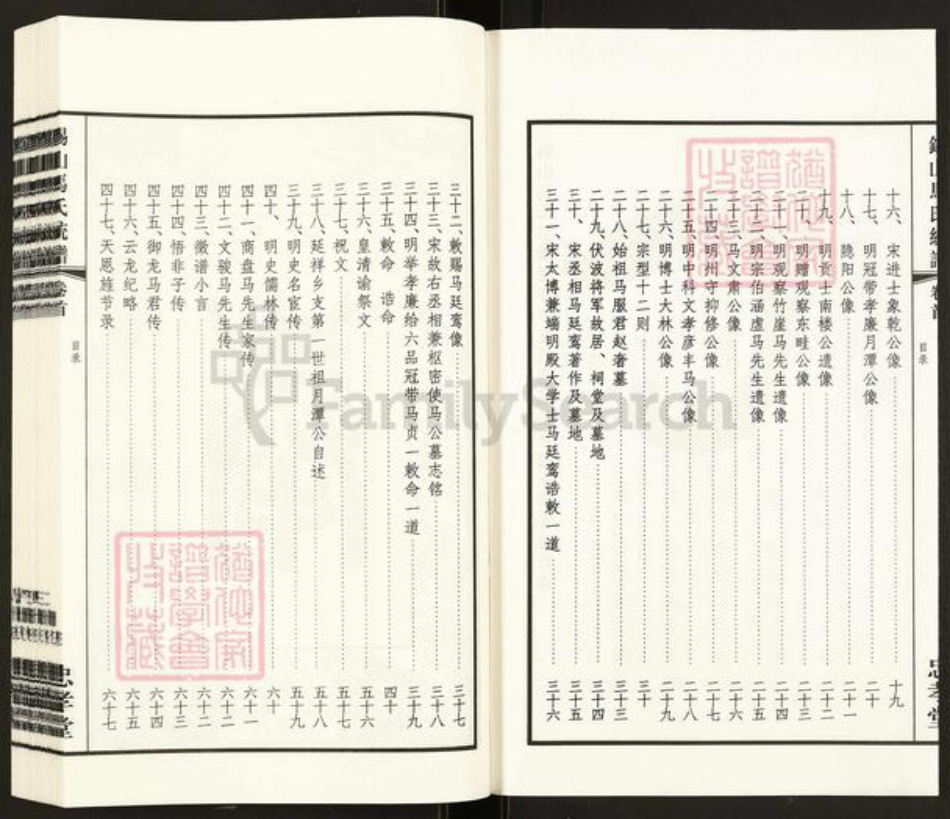 忠孝堂
卷首
目录
十六、宋进士象乾公像 十九
十七、明冠带孝廉月潭公像 二十
十八、隐阳公像 二十一
十九、明贡士南楼公遗像 二十二
二十、明赠观察东畦公像 二十三
二十一、明观察竹崖马先生遗像 二十四
二十二、明宗伯涵虚马先生遗像 二十五
二十三、马文肃公像 二十六
二十四、明州守抑修公像 二十七
二十五、明中科文孝彦丰马公像 二十八
二十六、明博士大林公像 二十九
二十七、宗型十二则 三十
二十八、始祖马服君赵奢墓 三十三
二十九、伏波将军故居、祠堂及墓地 三十四
三十、宋丞相马廷鸾著作及墓地 三十五
三十一、宋太博兼端明殿大学士马廷鸾诰敕一道 三十六
三十二、敕赐马廷鸾像 三十七
三十三、宋故右丞相兼枢密使马公墓志铭 三十八
三十四、明举孝廉给六品冠带马贞一敕命一道 三十九
三十五、敕命 诰命 四十
三十六、皇清谕祭文 五十六
三十七、祝文 五十七
三十八、延祥乡支第一世祖月潭公自述 五十八
三十九、明史名宦传 五十九
四十、明史儒林传 六十
四十一、商盘马先生家传 六十一
四十二、文骏马先生传 六十二
四十三、徵谱小言 六十二
四十四、悟非子传 六十三
四十五、御龙马君传 六十四
四十六、云龙纪略 六十五
四十七、天恩旌节录 六十七
目录
卷首
忠孝堂
FamilySearch